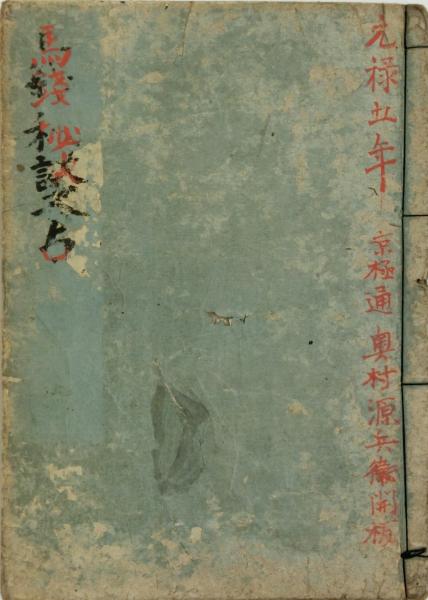 元禄五年 京極通 奥村源兵衛開板
馬錢秘占